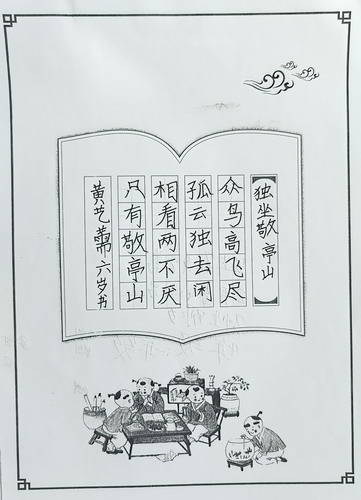 独坐敬亭山
众鸟高飞尽
孤云独去闲
相看两不厌
只有敬亭山
黄艺 六岁书